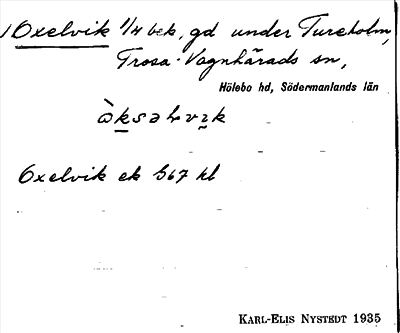 1 Oxelvik 1/4 bek, gd under Tureholm,
Trosa-Vagnhärads sn,
Hölebo hd, Södermanlands län
Oxelvik ek 567 kl
KARL-ELIS NYSTEDT 1935